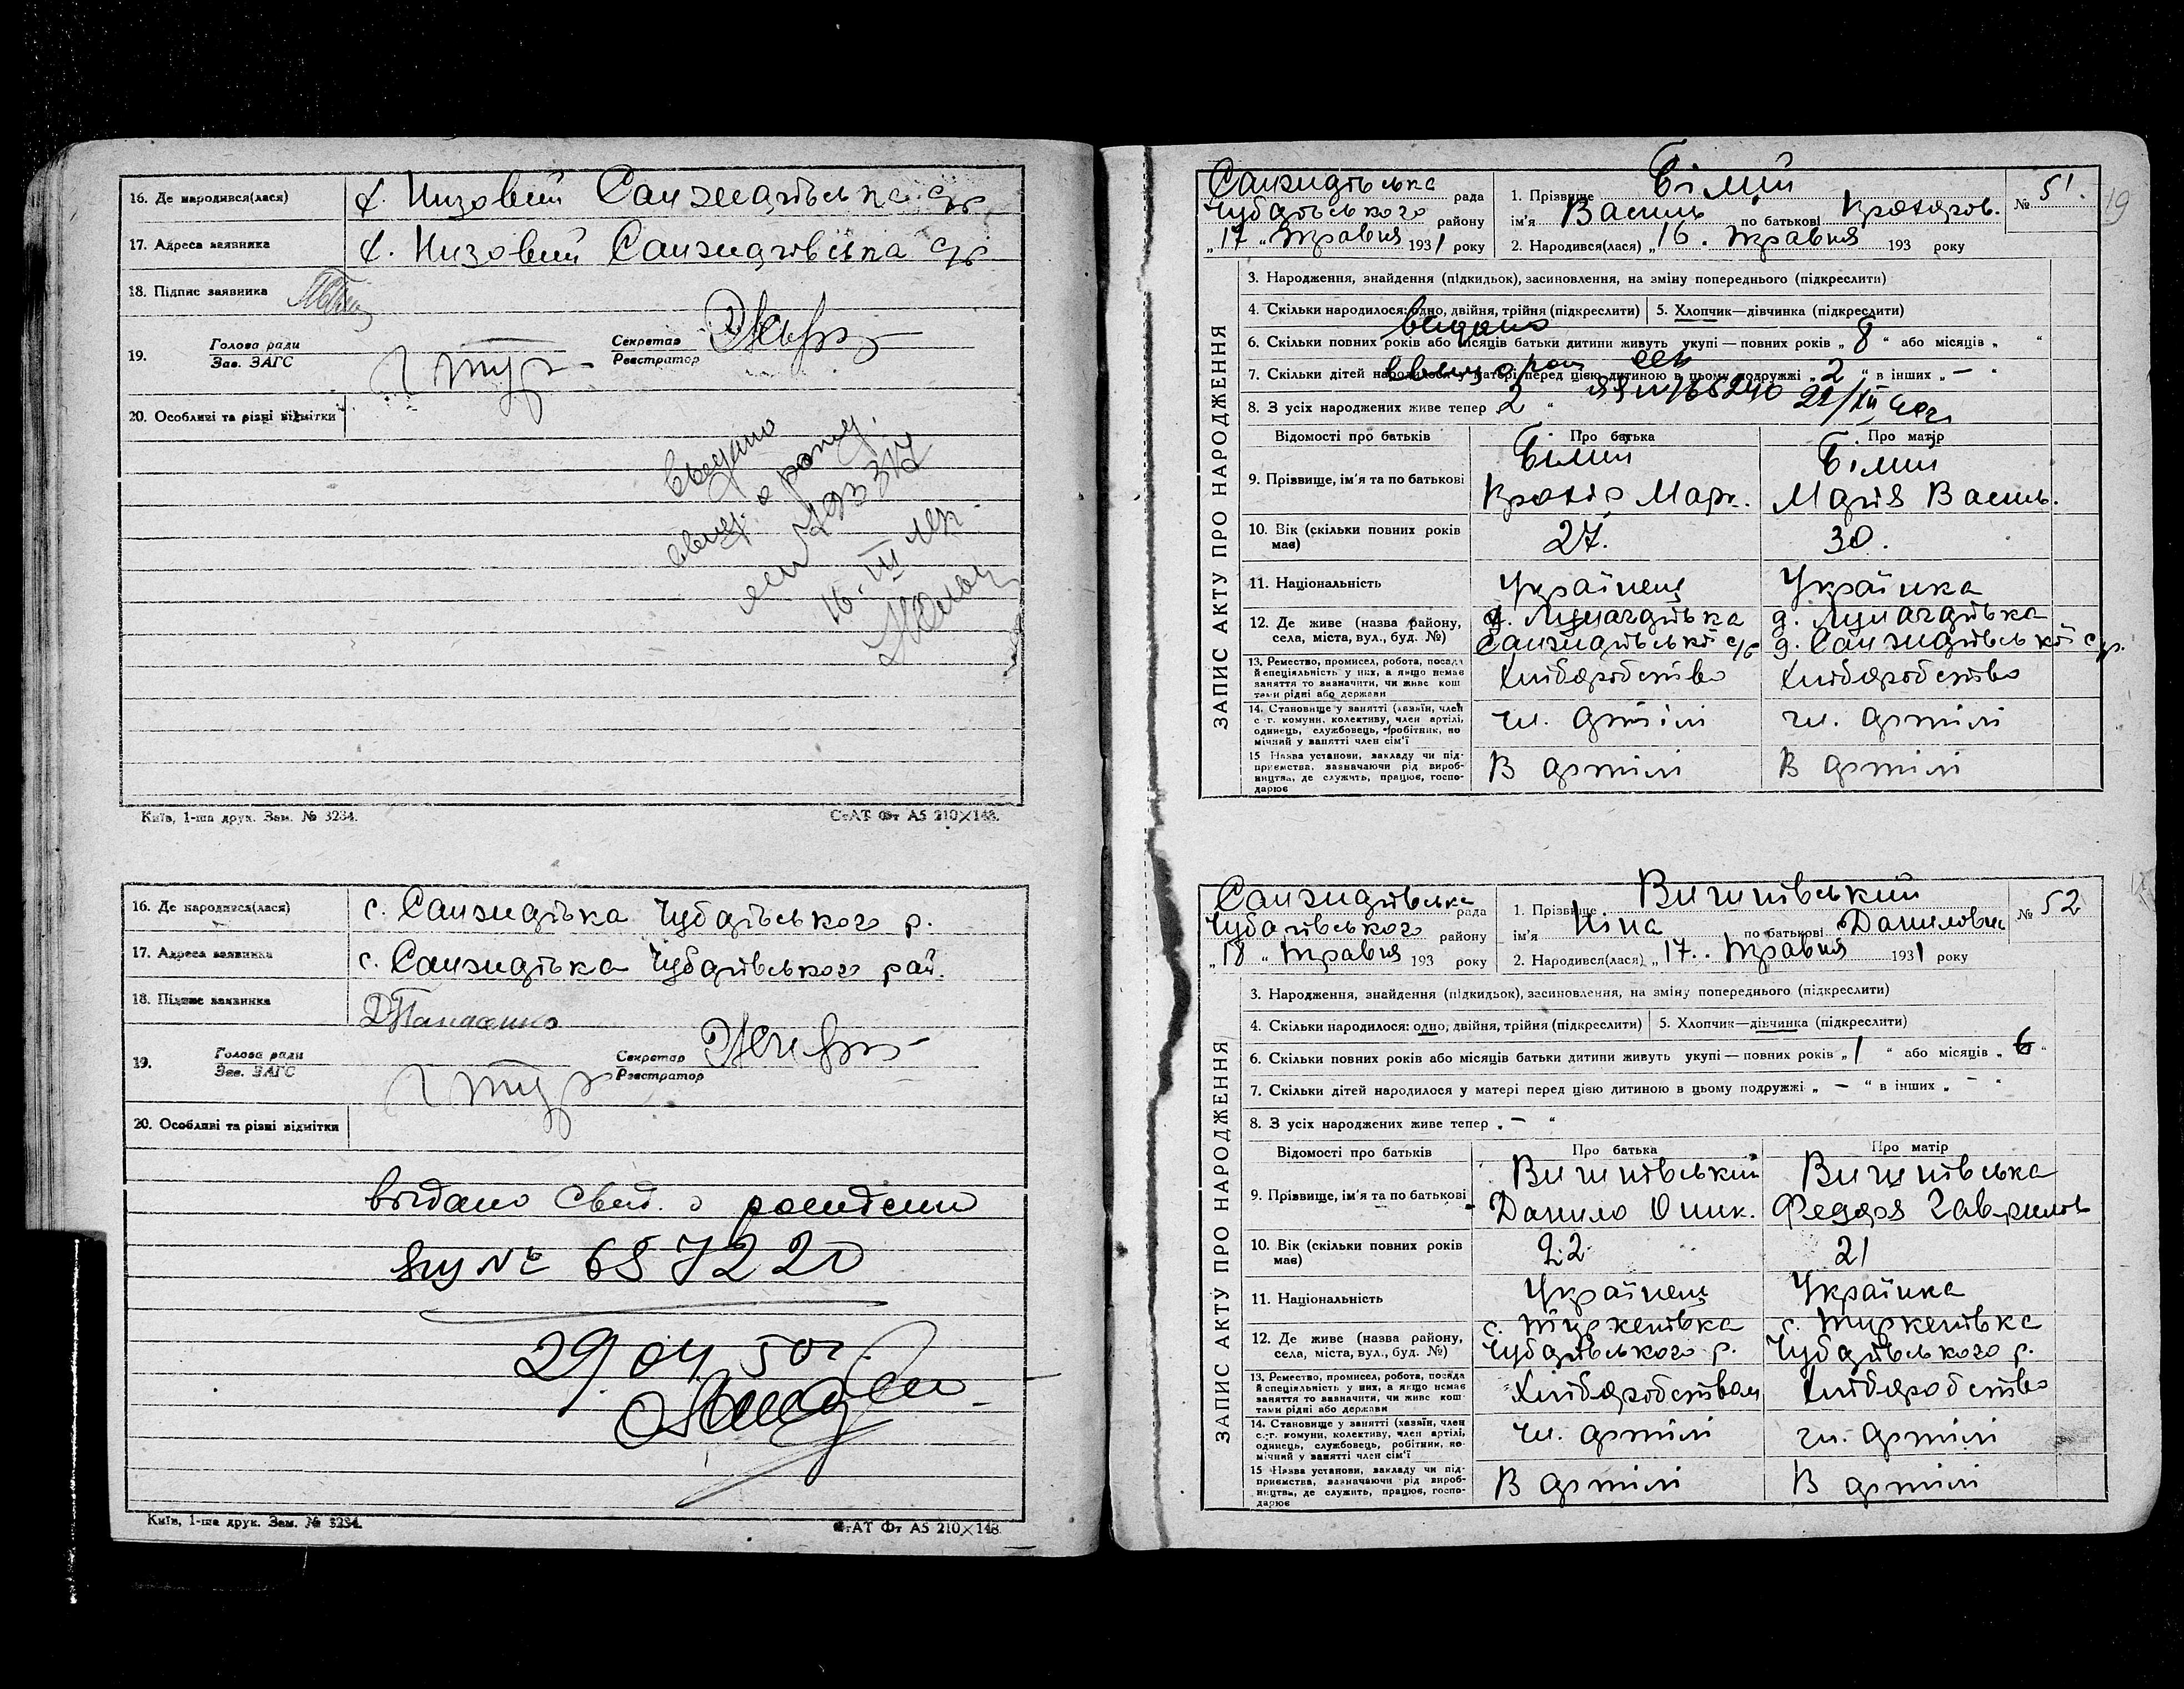 16. Де народився(лася) х. Низовий Санжаріївська с/р
17. Адреса заявника х. Низовий Санжаріївська с/р
18. Підпис заявника
19. Голова ради
Зав. ЗАГС
Секретар
Реєстратор
20. Особливі та різні відмітки
выдано
свид. о рожд.
16. III
Київ, 1-ша друк. Зам. № 3234.
СтАТ Фт А5 210×148.
16. Де народився(лася) с. Санжаріївка Чубарівського р.
17. Адреса заявника с. Санжаріївка Чубарівського рай.
18. Підпис заявника
19. Голова ради
Зав. ЗАГС
Секретар
Реєстратор
20. Особливі та різні відмітки
выдано свид. о рождении
№ 687220
29/04 50г.
Київ, 1-ша друк. Зам. № 3234.
СтАТ Фт А5 210×148.
19
Санжаріївська рада
Чубарівського району
„17“ Травня 1931 року
1. Прізвище Білий
ім'я Василь по батькові Прохоров.
№ 51.
2. Народився(лася) „16. Травня 193 року
ЗАПИС АКТУ ПРО НАРОДЖЕННЯ
3. Народження, знайдення (підкидьок), засиновлення, на зміну попереднього (підкреслити)
4. Скільки народилося: одно, двійня, трійня (підкреслити) 5. Хлопчик—дівчинка (підкреслити)
выдано
6. Скільки повних років або місяців батьки дитини живуть укупі — повних років „8“ або місяців „ “
7. Скільки дітей народилося у матері перед цією дитиною в цьому подружжі „2“ в інших „—“
8. З усіх народжених живе тепер 2 “
Відомості про батьків Про батька Про матір
9. Прізвище, ім'я та по батькові Білий Прохір Марк. Білий Марія Василь.
10. Вік (скільки повних років має) 27. 30.
11. Національність Українець Українка
12. Де живе (назва району, села, міста, вул., буд. №) Санжаріївської с/р Санжаріївської с/р.
13. Ремество, промисел, робота, посада й спеціяльність у них, а якщо немає заняття то зазначити, чи живе коштами рідні або держави Хліборобство Хліборобство
14. Становище у занятті (хазяїн, член с.-г. комуни, колективу, член артілі, одинець, службовець, робітник, помічний у занятті член сім'ї чл. артілі чл. артілі
15 Назва установи, закладу чи підприємства, зазначаючи рід виробництва, де служить, працює, господарює В артілі В артілі
Санжаріївська рада
Чубарівського району
„18“ Травня 193 року
1. Прізвище Вишнівський
ім'я Ніна по батькові Даниловна
№ 52
2. Народився(лася) „17. Травня 1931 року
ЗАПИС АКТУ ПРО НАРОДЖЕННЯ
3. Народження, знайдення (підкидьок), засиновлення, на зміну попереднього (підкреслити)
4. Скільки народилося: одно, двійня, трійня (підкреслити) 5. Хлопчик—дівчинка (підкреслити)
6. Скільки повних років або місяців батьки дитини живуть укупі — повних років „1“ або місяців „6“
7. Скільки дітей народилося у матері перед цією дитиною в цьому подружжі „—“ в інших „—“
8. З усіх народжених живе тепер „—“
Відомості про батьків Про батька Про матір
9. Прізвище, ім'я та по батькові Вишнівський Данило Оник. Вишнівська Федора Гаврилов
10. Вік (скільки повних років має) 22 21
11. Національність Українець Українка
12. Де живе (назва району, села, міста, вул., буд. №) с. Тиркенівка Чубарівського р. с. Тиркенівка Чубарівського р.
13. Ремество, промисел, робота, посада й спеціяльність у них, а якщо немає заняття то зазначити, чи живе коштами рідні або держави Хліборобством Хліборобство
14. Становище у занятті (хазяїн, член с.-г. комуни, колективу, член артілі, одинець, службовець, робітник, помічний у занятті член сім'ї чл. артілі чл. артілі
15 Назва установи, закладу чи підприємства, зазначаючи рід виробництва, де служить, працює, господарює В артілі В артілі